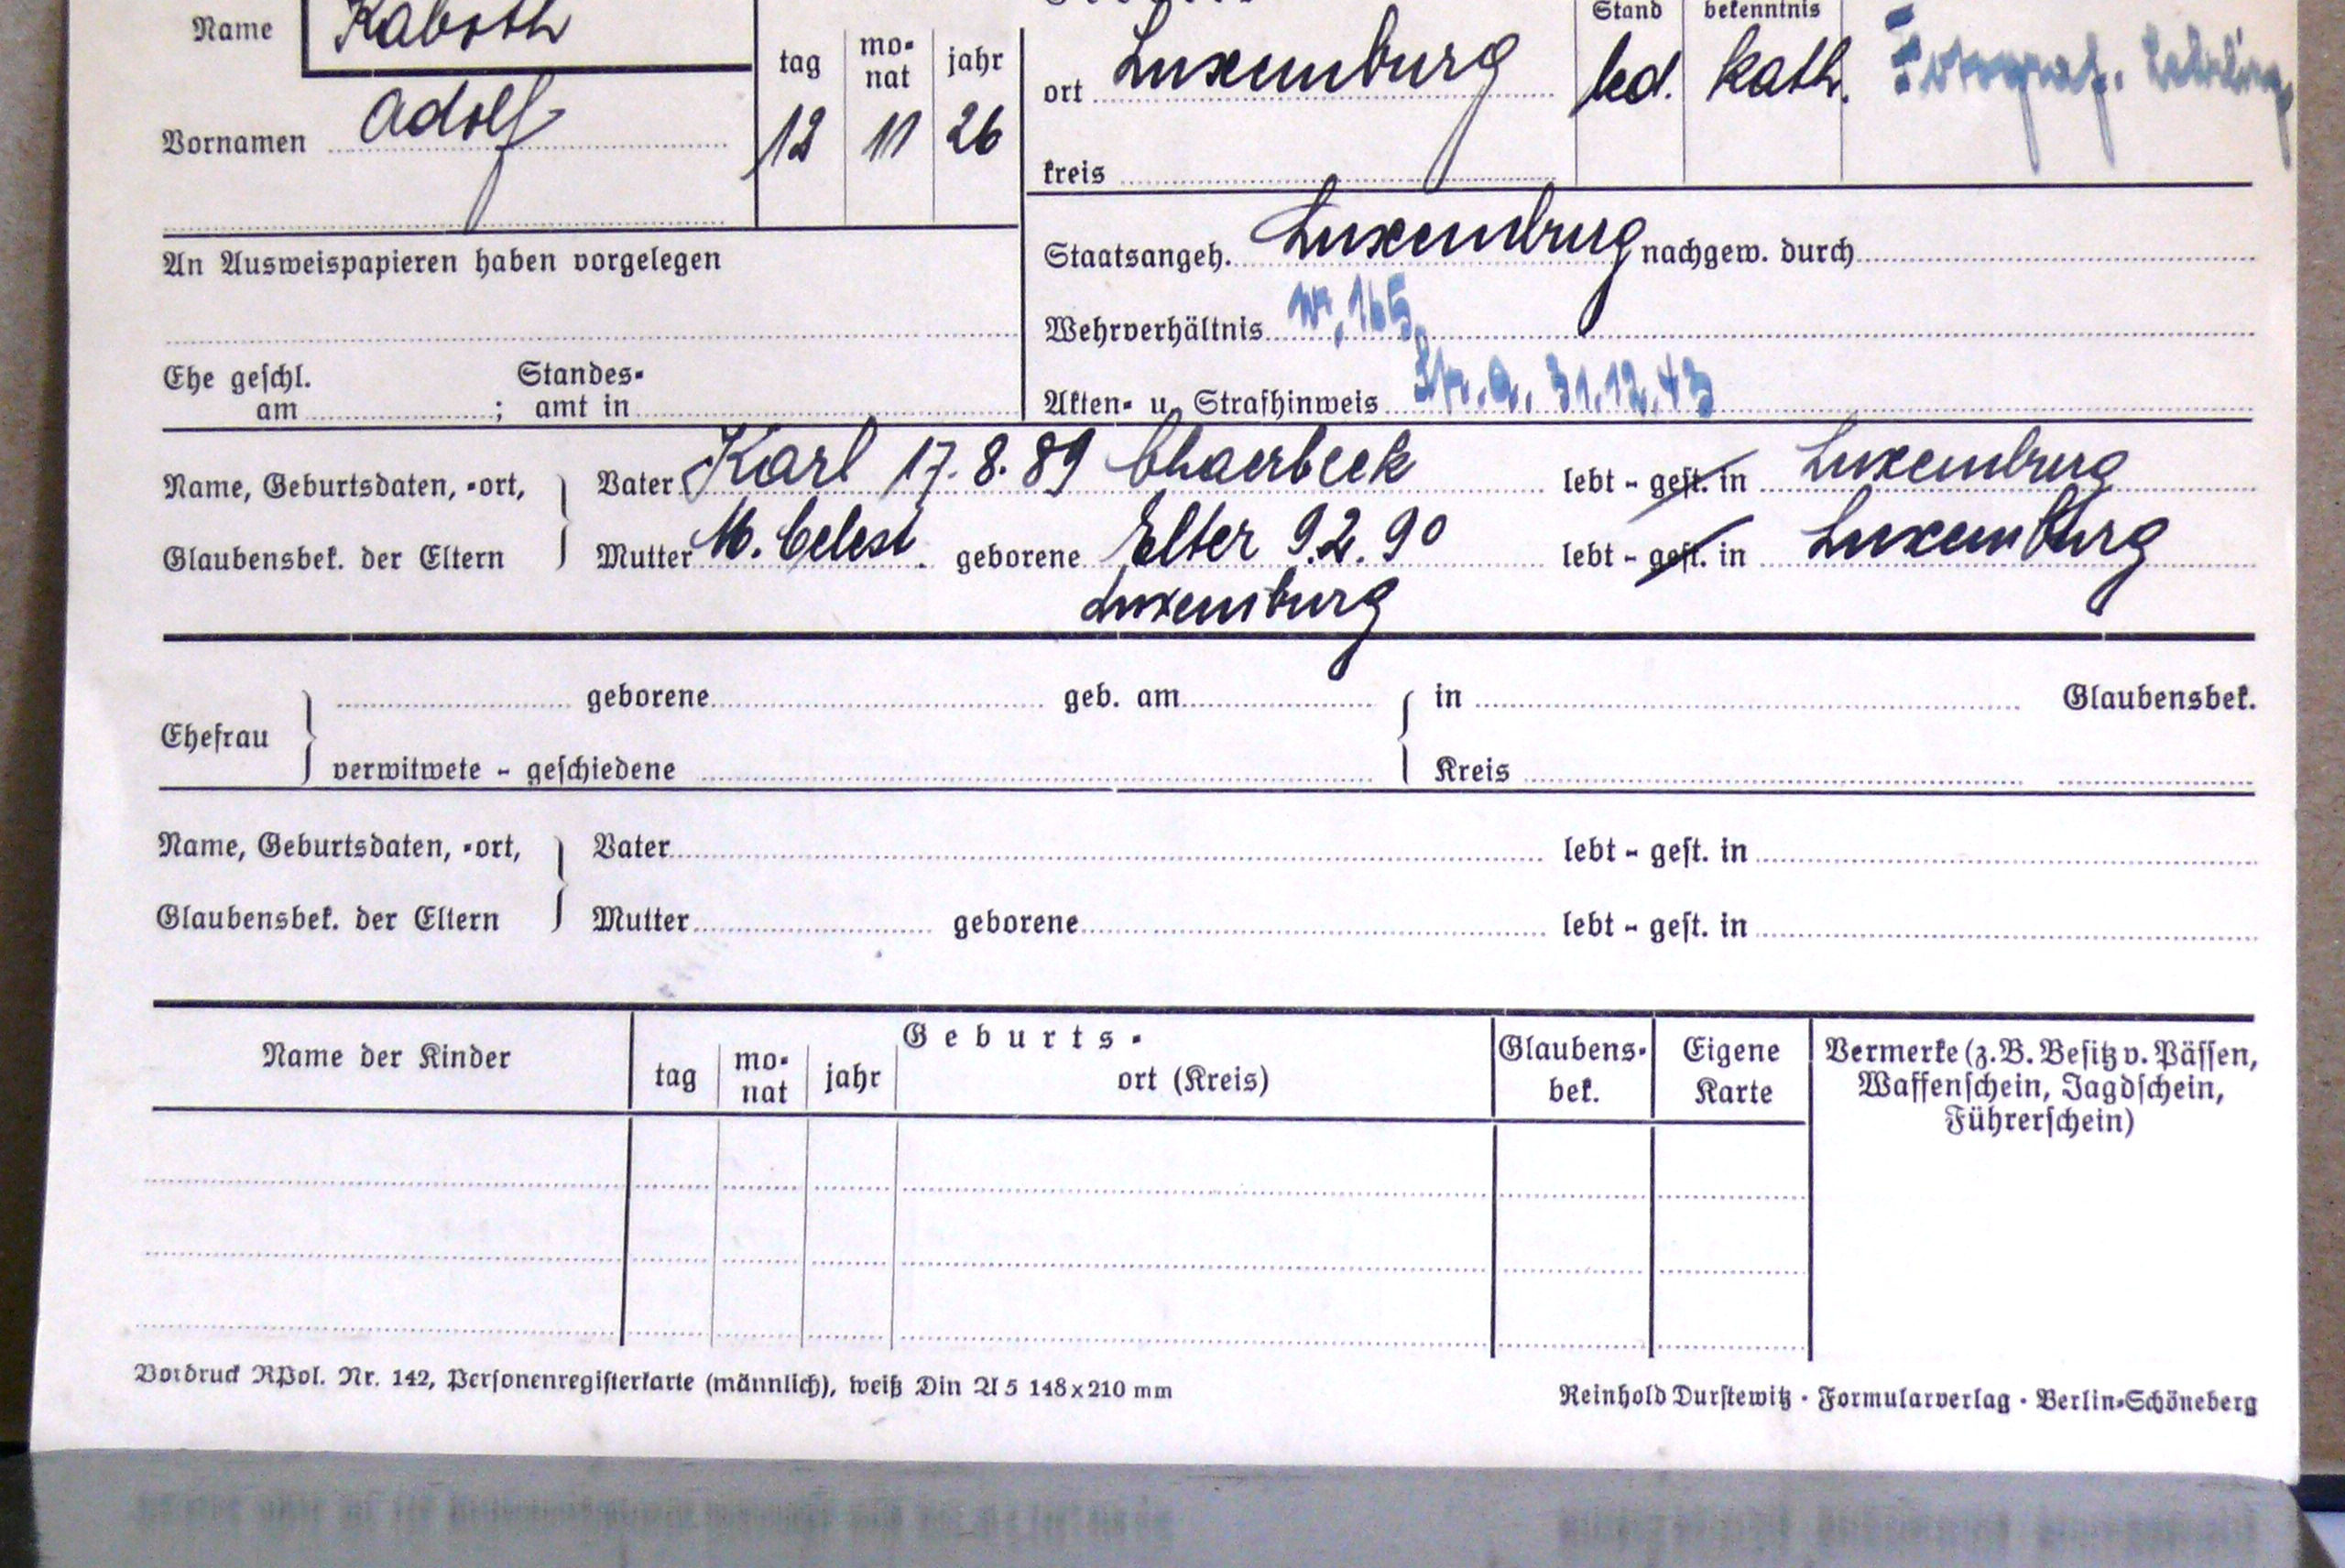 Stand bekenntnis
Name Kaboth
tag mo-nat jahr
ort Luxemburg led. kath. Fotograf. Lehrling
Vornamen Adolf 12 11 26
kreis
An Ausweispapieren haben vorgelegen
Staatsangeh. Luxemburg nachgew. durch
Wehrverhältnis W. 165
Ehe geschl. am ; Standes-amt in
Akten- u. Strafhinweis 31.12.43
Name, Geburtsdaten, -ort, Vater Karl 17.8.89 lebt - gest. in Luxemburg
Glaubensbek. der Eltern Mutter M. Celest. geborene Elter 9.2.90 lebt - gest. in Luxemburg
Luxemburg
geborene geb. am in Glaubensbek.
Ehefrau
verwitwete - geschiedene Kreis
Name, Geburtsdaten, -ort, Vater lebt - gest. in
Glaubensbek. der Eltern Mutter geborene lebt - gest. in
Name der Kinder Geburts- Glaubens- Eigene Vermerke (z. B. Besitz v. Pässen,
tag mo-nat jahr ort (Kreis) bek. Karte Waffenschein, Jagdschein,
Führerschein)
Vordruck RPol. Nr. 142, Personenregisterkarte (männlich), weiß Din A 5 148x210 mm
Reinhold Durstewitz · Formularverlag · Berlin-Schöneberg